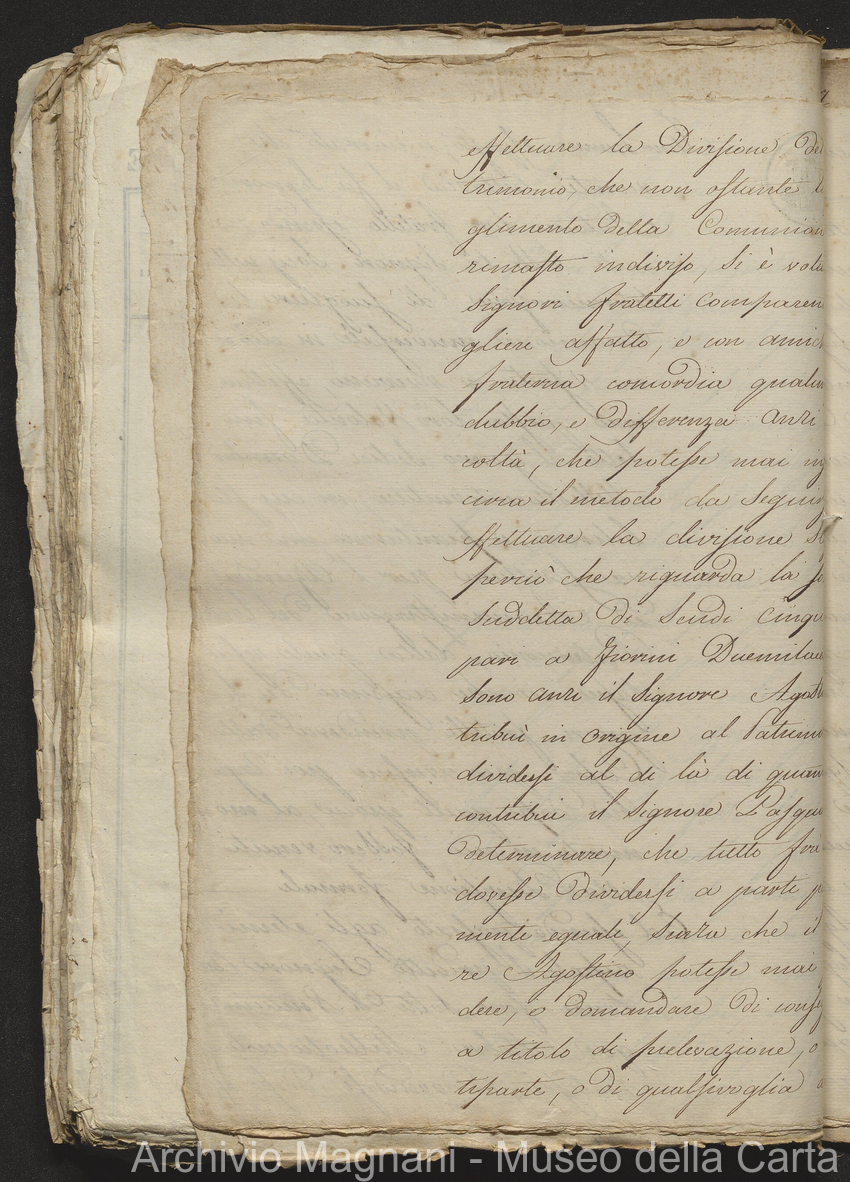 effettuare la Divisione de
trimonio, che non ostante
glimento della Comunion
rimasto indiviso, si è volu
Signori fratelli comparen
gliere affatto, e con amic
fraterna concordia qualun
dubbio, e differenza anzi
coltà, che potesse mai in
circa il metodo da Seguir
effettuare la divisione
perciò che riguarda la
Suddetta di Scudi Cinqu
pari a Fiorini Duemila
Sono anzi il Signore Agost
tribuì in origine al Patrimo
dividersi al di là di quan
contribuì il Signore Pasqu
determinare, che tutto fra
dovesse dividersi a parte p
menti eguale, Senza che il
re Agostino potesse mai
dere, o domandare di cons
a titolo di prelevazione, o
tiparte, o di qualsivoglia
Archivio Magnani - Museo della Carta